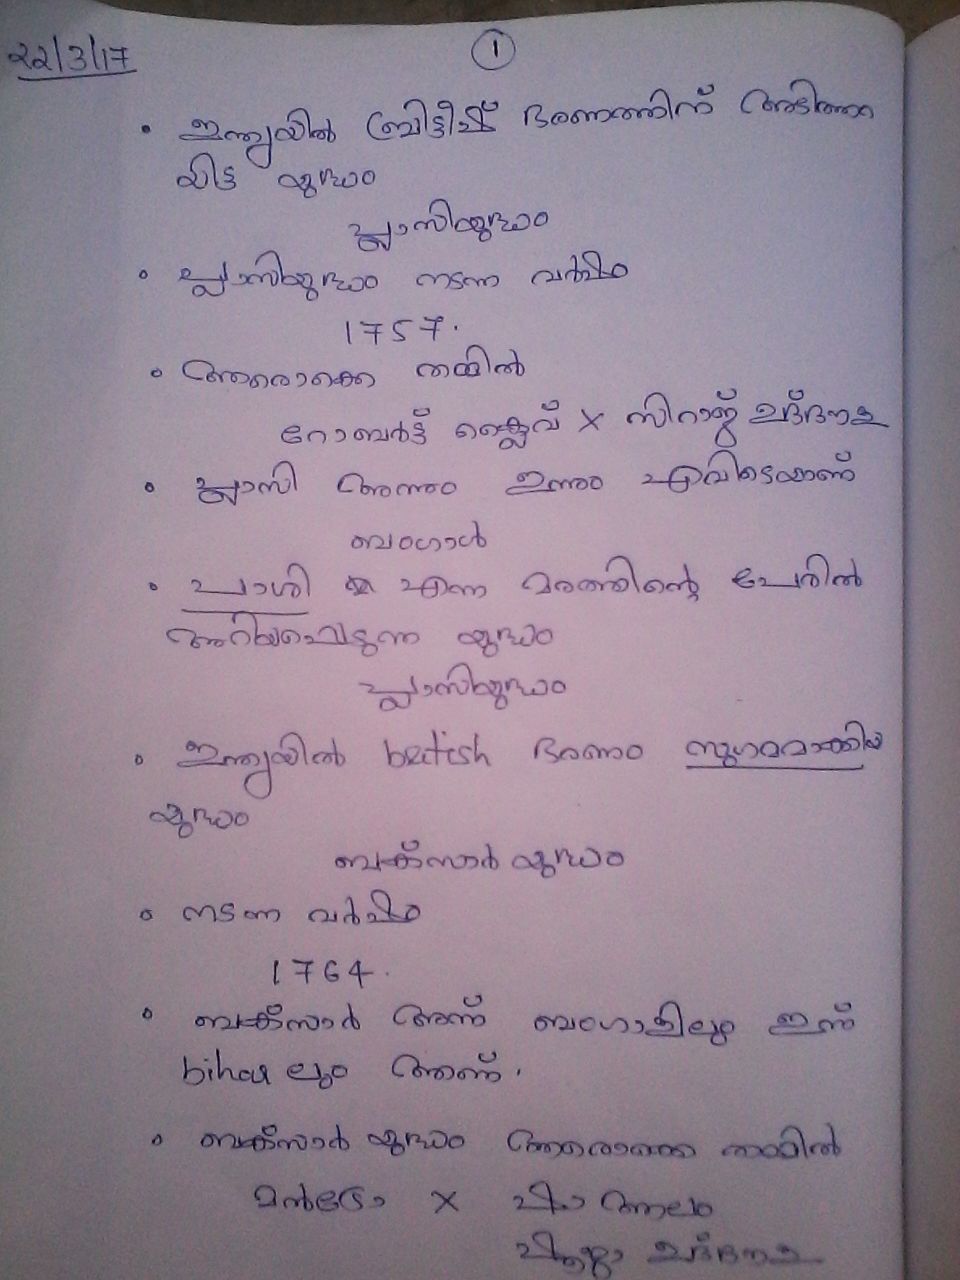 22/3/17
1
• ഇന്ത്യയിൽ ബ്രിട്ടീഷ് ഭരണത്തിന് അടിത്തറ
യിട്ട യുദ്ധം
പ്ലാസിയുദ്ധം
• പ്ലാസിയുദ്ധം നടന്ന വർഷം
1757.
• ആരൊക്കെ തമ്മിൽ
റോബർട്ട് ക്ലൈവ് X സിറാജ് ഉദ്ദൗള
• പ്ലാസി അന്നും ഇന്നും എവിടെയാണ്
ബംഗാൾ
• പാശി എന്ന മരത്തിന്റെ പേരിൽ
അറിയപ്പെടുന്ന യുദ്ധം
പ്ലാസിയുദ്ധം
• ഇന്ത്യയിൽ british ഭരണം സുഗമമാക്കിയ
യുദ്ധം
ബക്സാർ യുദ്ധം
• നടന്ന വർഷം
1764.
• ബക്സാർ അന്ന് ബംഗാളിലും ഇന്ന്
bihar ലും ആണ്.
• ബക്സാർ യുദ്ധം ആരൊക്കെ തമ്മിൽ
മൻട്രോ X ഷാ ആലം
ഉദ്ദൗള